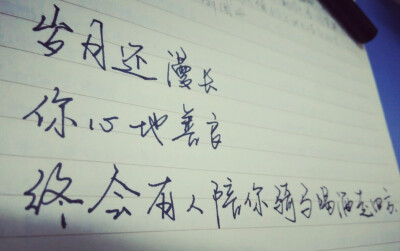 岁月还漫长
你心地善良
终会有人陪你骑马喝酒走四方